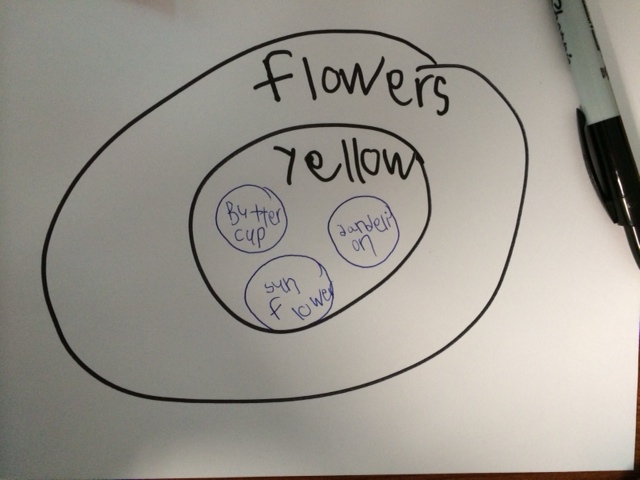 flowers
yellow
Butter
cup
dandeli
on
sun
flower